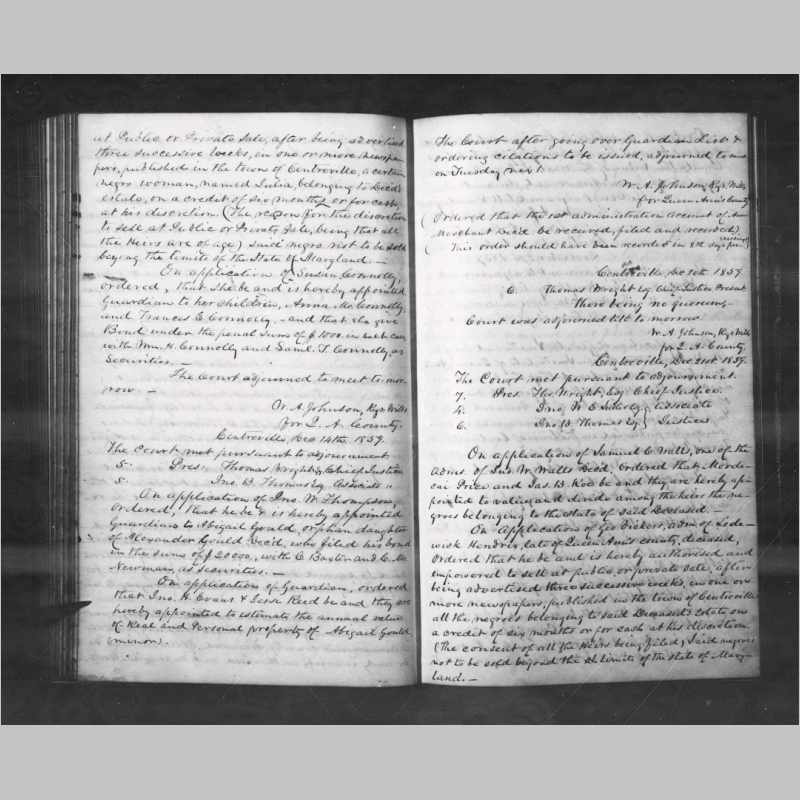 at Public or Private Sale, after being advertised
three successive weeks, in one or more newspa-
pers, published in the town of Centreville, a certain
negro woman, named Julia, belonging to Decd's
estate, on a credit of six months or for cash,
at his discretion. (The reasons for the discretion
to sell at Public or Private Sale, being that all
the Heirs are of age) said negro not to be sold
beyong the limits of the State of Maryland. —
On application of Susan Connolly,
ordered, that she be and is hereby appointed
Guardian to her children, Anna M. Connolly,
and Frances E. Connolly — and that she give
Bond under the penal sums of $1000. in each case
with Wm. H. Connolly and Saml. T. Connolly, as
Securities. —
The Court adjourned to meet to mor-
row —
W. A. Johnson, Regr. Wills
for Q. A. County.
Centreville, Dec 14th 1859.
The Court met pursuant to adjournment
5. Pres. Thomas Wright Esq Chief Justice
5. Jno. B. Thomas Esq Associate "
On application of Jno. W. Thompson,
Ordered, that he be & is hereby appointed
Guardian to Abigail Gould, orphan daughter
of Alexander Gould Decd, who filed his bond
in the sums of $20000, with C. Baxter and C. M.
Newman, as securities. —
On application of Guardian, ordered
that Jno. H. Evans & Jesse Reed be and they are
hereby appointed to estimate the annual value
of Real and Personal property of Abigail Gould
(minor).
The Court after going over Guardian List &
ordering citations to be issued, adjourned to meet
on Tuesday next
W. A. Johnson, Regr. Wills
for Queen Ann's County
(Ordered that the 1st administration account of
Merchant Decd be received, filed and recorded)
(This order should have been recorded in
Centreville, Dec 20th 1859.
6. Thomas Wright Esq. Chief Justice Present
There being no quorum —
Court was adjourned till to morrow
W. A. Johnson, Regr Wills
for Q. A. County
Centreville, Dec 21st 1859.
The Court met pursuant to adjournment.
7. Pres. Thos. Wright, Esq Chief Justice.
4. Jno. W. E. Associate
6. Jno. B. Thomas Esq. Justices.
On application of Samuel C. Watts, one of the
adms. of Jas. W. Watts Decd, Ordered that Morde-
cai Price and Jas. B. be and they are hereby ap-
pointed to value and divide among the heirs the ne-
groes belonging to the state of said Deceased. —
On application of Geo Vickers, adm. of Lode-
wick Hendrix, late of Queen Ann's county, deceased,
Ordered that he be and is hereby authorised and
impowered to sell at public or private sale, after
being advertised three successive weeks, in one or
more newspapers, published in the town of Centreville
all the negroes belonging to said Deceased's Estate on
a credit of six months or for cash at his discretion.
(The consent of all the Heirs being filed) Said negroes
not to be sold beyond the limits of the State of Mary-
land. —